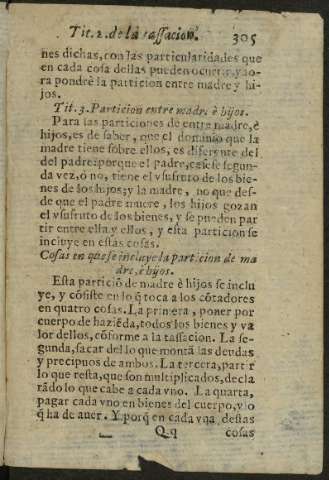 Tit. 2. de la tassacion. 305
nes dichas, con las particularidades que
en cada cosa dellas pueden ocurrir, y ao-
ra pondrè la particion entre madre y hi-
jos.
Tit. 3. Particion entre madre è hijos.
Para las particiones de entre madre, è
hijos, es de saber, que el dominio que la
madre tiene sobre ellos, es diferente del
del padre: porque el padre, case segun-
da vez, ò no, tiene el vsufruto de los bie-
nes de los hijos; y la madre, no que des-
de que el padre muere, los hijos gozan
el vsufruto de los bienes, y se pueden par
tir entre ella y ellos, y esta particion se
incluye en estas cosas.
Cosas en que se incluye la particion de ma
dre, è hijos.
Esta particiõ de madre è hijos se inclu
ye, y cõsiste en lo q̃ toca a los cõtadores
en quatro cosas. La primera, poner por
cuerpo de haziẽda, todos los bienes y va
lor dellos, cõforme a la tassacion. La se-
gunda, sacar del lo que montã las deudas
y precipuos de ambos. La tercera, partir
lo que resta, que son multiplicados, decla
rãdo lo que cabe a cada vno. La quarta,
pagar cada vno en bienes del cuerpo,
q̃ ha de auer. Y porq̃ en cada vna destas
Qq cosas